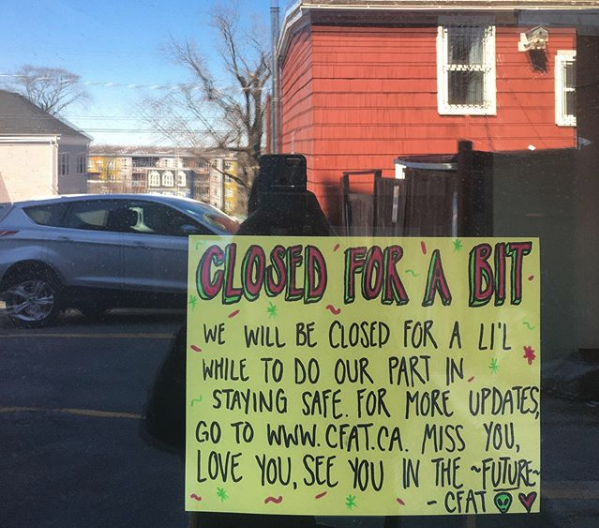 CLOSED FOR A BIT
WE WILL BE CLOSED FOR A LI'L
WHILE TO DO OUR PART IN
STAYING SAFE. FOR MORE UPDATES,
GO TO WWW.CFAT.CA. MISS YOU,
LOVE YOU, SEE YOU IN THE ~FUTURE~
- CFAT